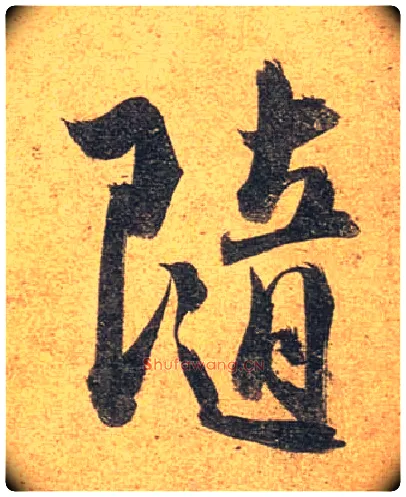 隨
Shufawang.cn